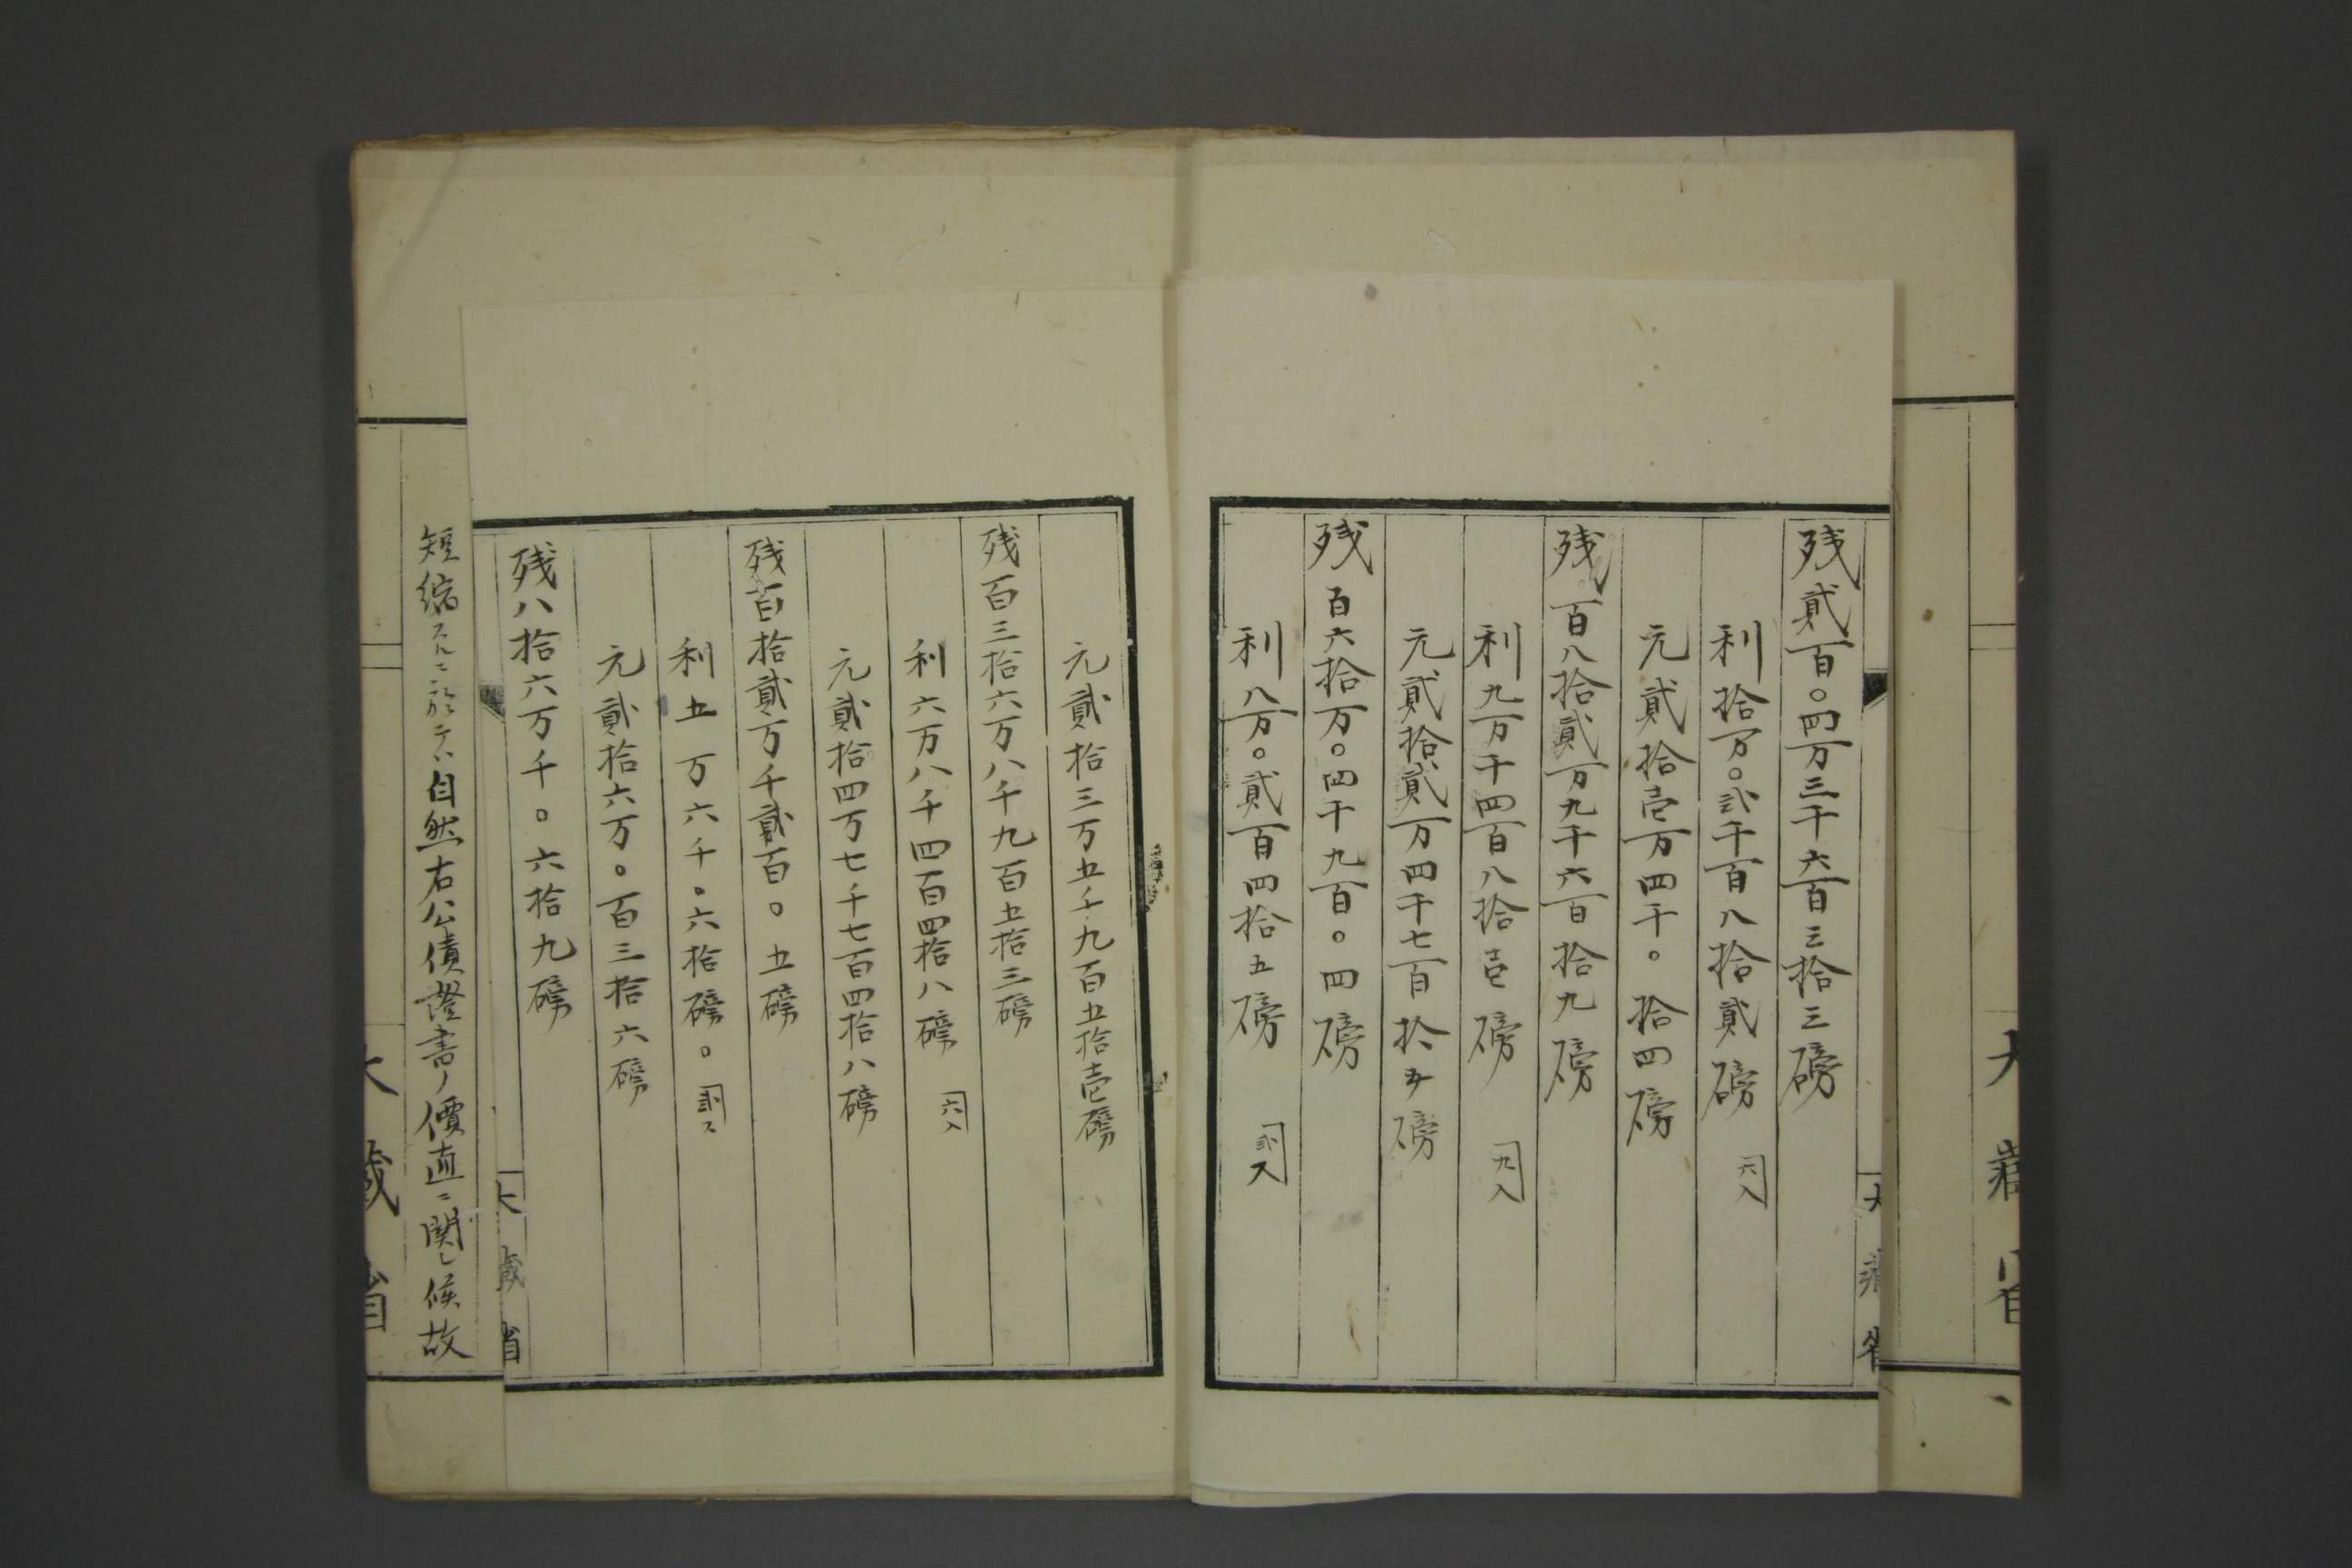 大藏省
大藏省
残貳百〇四万三千六百三拾三磅
利拾万〇弐千百八拾貳磅 六入
元貳拾壱万四千〇拾四磅
残百八拾貳万九千六百拾九磅
利九万千四百八拾壱磅 九入
元貳拾貳万四千七百拾五磅
残百六拾万〇四千九百〇四磅
利八万〇貳百四拾五磅 弐入
元貳拾三万五千九百五拾壱磅
残百三拾六万八千九百五拾三磅
利六万八千四百四拾八磅 六入
元貳拾四万七千七百四拾八磅
残百拾貳万千貳百〇五磅
利五万六千〇六拾磅〇 弐入
元貳拾六万〇百三拾六磅
残八拾六万千〇六拾九磅
大藏省
短縮スルニ於テハ自然右公債證書ノ價直ニ関シ候故
大藏省